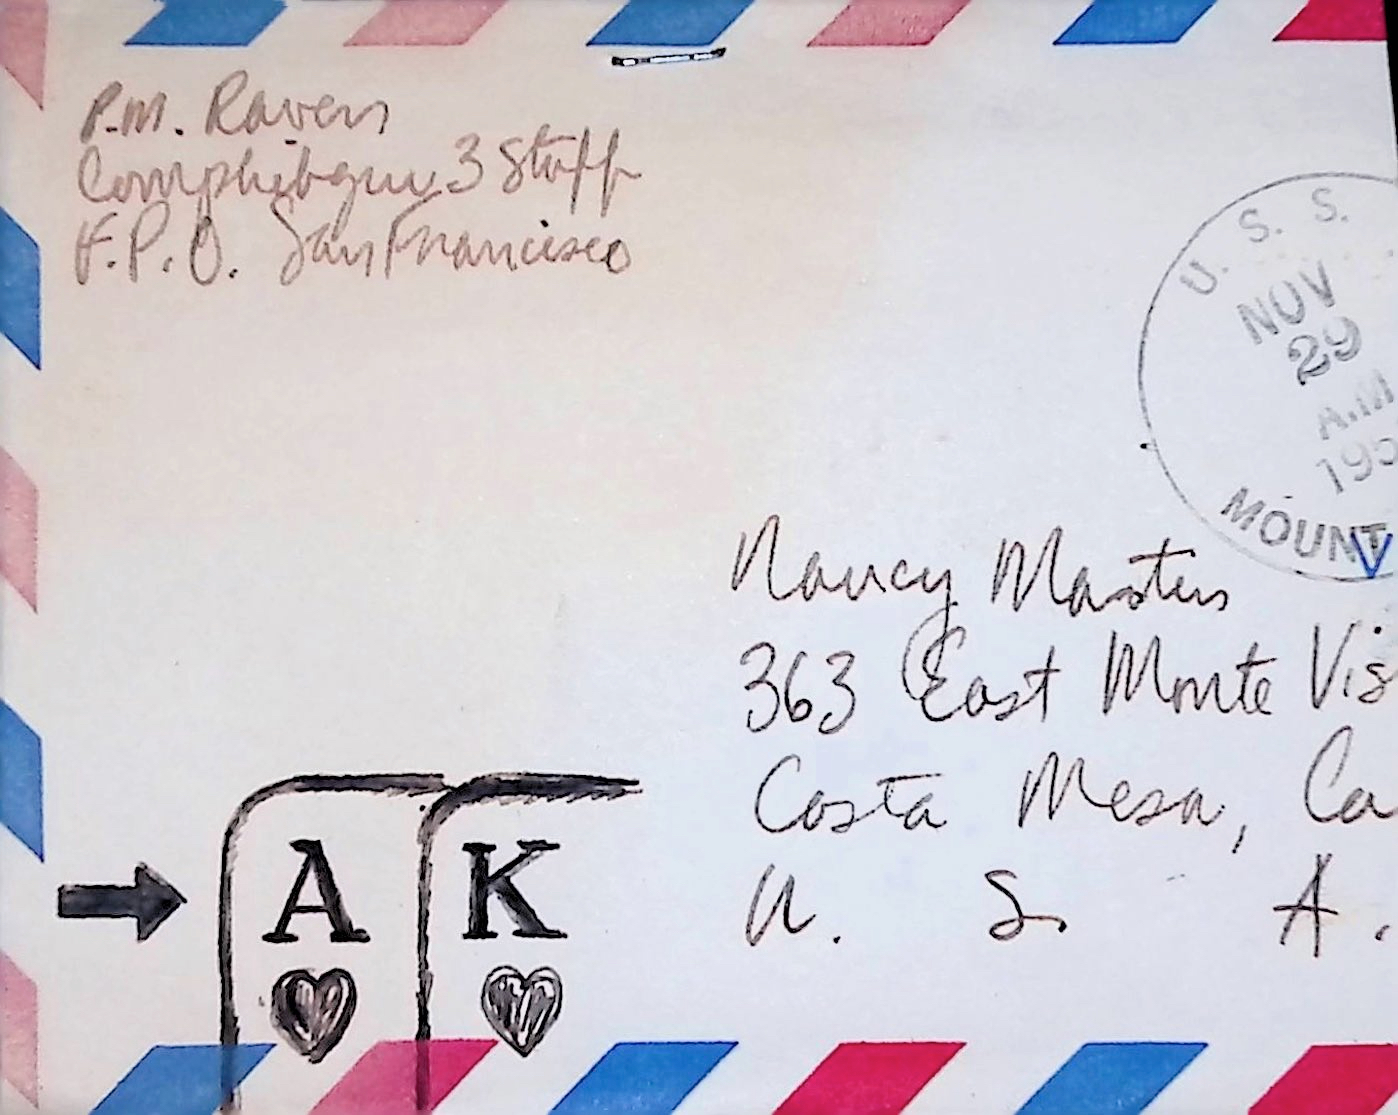 P.M. Raven
Comphibgru 3 Staff
F.P.O. San Francisco
U. S. S.
NOV
29
A.M
195
MOUNT
Nancy Masters
363 East Monte Vis
Costa Mesa, Ca
U. S. A.
A K